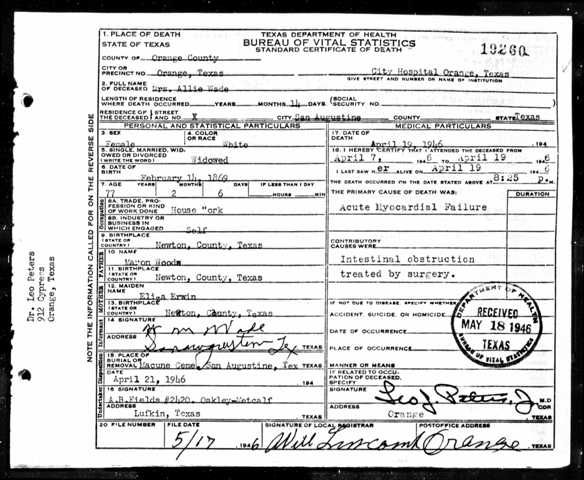 1. PLACE OF DEATH
STATE OF TEXAS
TEXAS DEPARTMENT OF HEALTH
BUREAU OF VITAL STATISTICS
STANDARD CERTIFICATE OF DEATH
19260
COUNTY OF Orange County
CITY OR
PRECINCT NO. Orange, Texas
City Hospital Orange, Texas
GIVE STREET AND NUMBER OR NAME OF INSTITUTION
2. FULL NAME
OF DECEASED Mrs. Allie Wade
LENGTH OF RESIDENCE
WHERE DEATH OCCURRED YEARS MONTHS 14 DAYS
SOCIAL
SECURITY NO.
RESIDENCE OF STREET
THE DECEASED AND NO. X CITY San Augustine COUNTY STATE Texas
PERSONAL AND STATISTICAL PARTICULARS
3. SEX
Female
4. COLOR
OR RACE
White
5. SINGLE, MARRIED, WID-
OWED OR DIVORCED
(WRITE THE WORD)
Widowed
6. DATE OF BIRTH
February 14, 1869
7. AGE YEARS MONTHS DAYS IF LESS THAN 1 DAY
77 2 6 HOURS MIN
8A. TRADE, PRO-
FESSION OR KIND
OF WORK DONE House Work
8B. INDUSTRY OR
BUSINESS IN
WHICH ENGAGED Self
9. BIRTHPLACE
(STATE OR
COUNTRY) Newton, County, Texas
10. NAME
Maron Woods
11. BIRTHPLACE
(STATE OR
COUNTRY) Newton, County, Texas
12. MAIDEN
NAME
Eliza Erwin
13. BIRTHPLACE
(STATE OR
COUNTRY) Newton, County, Texas
14. SIGNATURE
W M Wade
ADDRESS
TEXAS
15. PLACE OF
BURIAL OR
REMOVAL Macune Ceme. San Augustine, Tex
DATE
April 21, 1946 194
16. SIGNATURE
A.B.Fields #2420. Oakley-Metcalf
ADDRESS
Lufkin, Texas TEXAS
MEDICAL PARTICULARS
17. DATE OF
DEATH
April 19, 1946 194
18. I HEREBY CERTIFY THAT I ATTENDED THE DECEASED FROM
April 7, 1946 TO April 19 1946
I LAST SAW H er ALIVE ON April 19 1946
THE DEATH OCCURRED ON THE DATE STATED ABOVE AT 8:25 P. M.
THE PRIMARY CAUSE OF DEATH WAS: DURATION
Acute Myocardial Failure
CONTRIBUTORY
CAUSES WERE:
Intestinal obstruction
treated by surgery.
IF NOT DUE TO DISEASE, SPECIFY WHETHER
ACCIDENT, SUICIDE, OR HOMICIDE
DATE OF OCCURRENCE
PLACE OF OCCURRENCE
MANNER OR MEANS
IF RELATED TO OCCU-
PATION OF DECEASED,
SPECIFY
SIGNATURE
Leo J. Peters, Jr M.D.
ADDRESS
Orange TEXAS
DEPARTMENT OF HEALTH
RECEIVED
MAY 18 1946
TEXAS
BUREAU OF VITAL STATISTICS
20. FILE NUMBER FILE DATE SIGNATURE OF LOCAL REGISTRAR POSTOFFICE ADDRESS
5/17 1946 Will Linscomb Orange TEXAS
NOTE THE INFORMATION CALLED FOR ON THE REVERSE SIDE
Dr. Leo Peters
212 Cypress
Orange, Texas